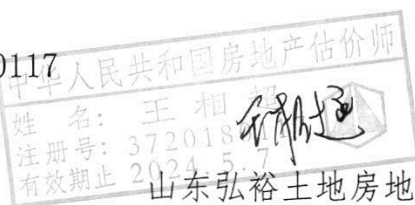 0117
中华人民共和国房地产估价师
姓 名: 王 相
注册号: 372018
有效期止 2024.5.7
山东弘裕土地房地